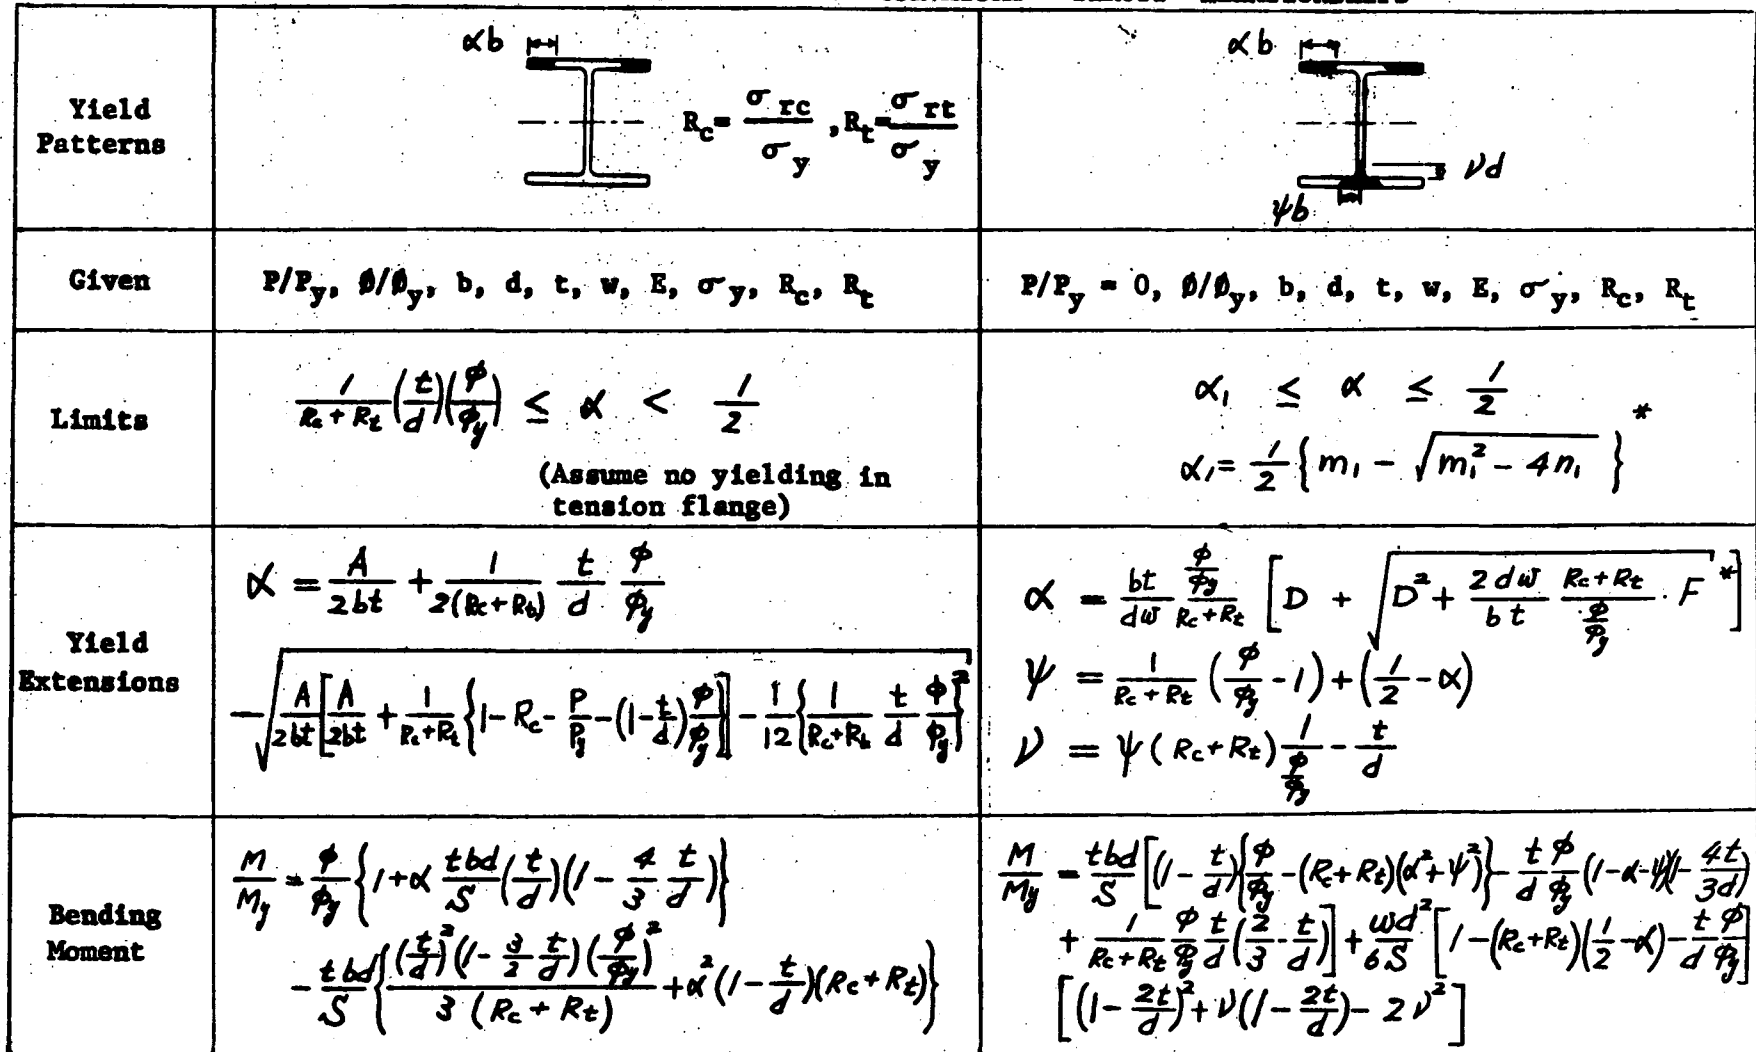 αb
R_c = σ_rc / σ_y , R_t = σ_rt / σ_y
αb
νd
ψb
Yield
Patterns
Given
P/P_y, Ø/Ø_y, b, d, t, w, E, σ_y, R_c, R_t
P/P_y = 0, Ø/Ø_y, b, d, t, w, E, σ_y, R_c, R_t
Limits
1/(R_c + R_t) (t/d)(φ/φ_y) ≤ α < 1/2
(Assume no yielding in
tension flange)
α_1 ≤ α ≤ 1/2
α_1 = 1/2 { m_1 - √(m_1² - 4n_1) } *
Yield
Extensions
α = A/2bt + 1/(2(R_c + R_t)) t/d φ/φ_y
- √( A/2bt [ A/2bt + 1/(R_c + R_t) { 1 - R_c - P/P_y - (1 - t/d) φ/φ_y } ] - 1/12 { 1/(R_c + R_t) t/d φ/φ_y }² )
α = bt/dw (φ/φ_y)/(R_c + R_t) [ D + √( D² + 2dw/bt (R_c + R_t)/(φ/φ_y) · F ) * ]
ψ = 1/(R_c + R_t) (φ/φ_y - 1) + (1/2 - α)
ν = ψ(R_c + R_t) 1/(φ/φ_y) - t/d
Bending
Moment
M/M_y = φ/φ_y { 1 + α tbd/S (t/d)(1 - 4/3 t/d) }
- tbd/S { (t/d)² (1 - 3/2 t/d)(φ/φ_y)² / 3(R_c + R_t) + α² (1 - t/d)(R_c + R_t) }
M/M_y = tbd/S [ (1 - t/d){ φ/φ_y - (R_c + R_t)(α² + ψ²) } - t/d φ/φ_y (1 - α - ψ)(1 - 4t/3d)
+ 1/(R_c + R_t) φ/φ_y t/d (2/3 - t/d) ] + wd²/6S [ 1 - (R_c + R_t)(1/2 - α) - t/d φ/φ_y ]
[ (1 - 2t/d)² + ν(1 - 2t/d) - 2ν² ]